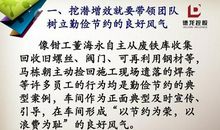 德龙控股
一、挖潜增效就要带领团队
树立勤俭节约的良好风气
像钳工董海水自主从废铁库收集
回收旧螺丝、阀门、可再利用钢材等,
马栋朝主动捡回施工现场遗落的焊条
等许多员工的行为均是勤俭节约的典
型案例,车间作为正面典型及时宣传
引导,在车间形成“以节约为荣,以
浪费为耻”的良好风气。